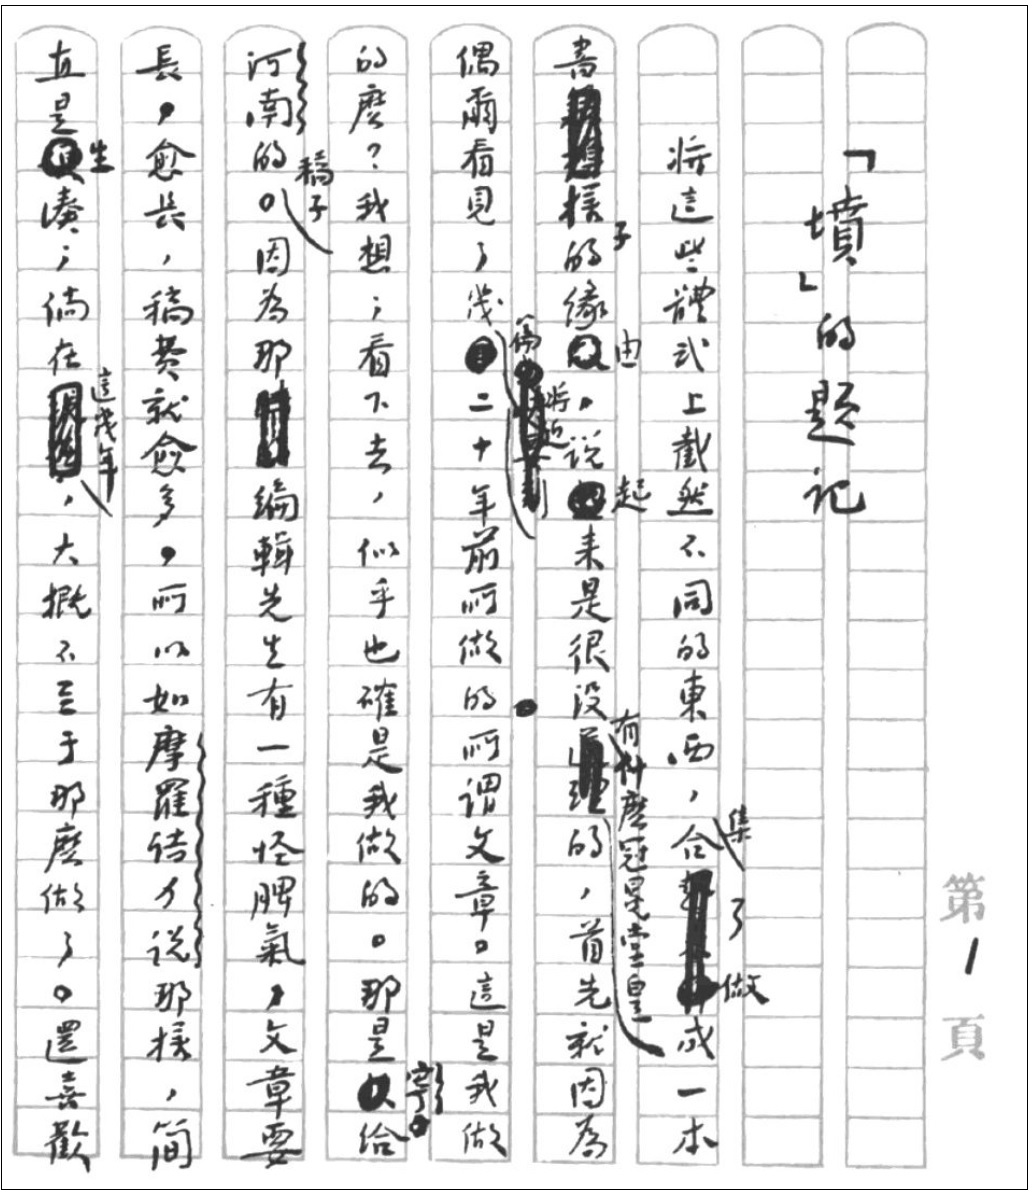 第1頁
「墳」的題記
將這些體式上截然不同的東西,集合了做成一本
書樣子的緣由,说起来是很没有什麽冠冕堂皇的,首先就因為
偶爾看見了幾篇將近二十年前所做的所謂文章。這是我做
的麽?我想;看下去,似乎也確是我做的。那是寄給
河南的稿子。因為那編輯先生有一種怪脾氣,文章要
長,愈長,稿费就愈多。所以如摩羅詩力说那樣,簡
直是生湊;倘在這幾年,大概不至于那麽做了。還喜歡